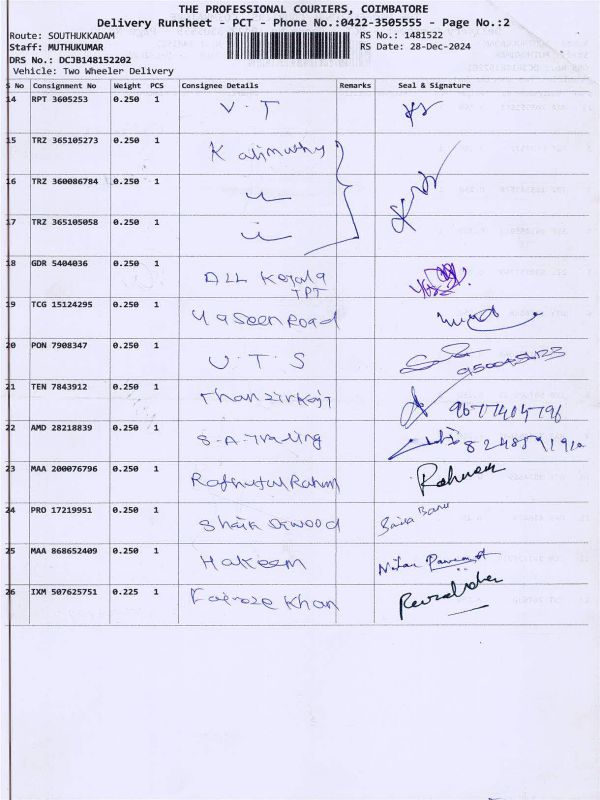 THE PROFESSIONAL COURIERS, COIMBATORE
Delivery Runsheet - PCT - Phone No.:0422-3505555 - Page No.:2
Route: SOUTHUKKADAM RS No.: 1481522
Staff: MUTHUKUMAR RS Date: 28-Dec-2024
DRS No.: DCJB148152202
Vehicle: Two Wheeler Delivery
S No Consignment No Weight PCS Consignee Details Remarks Seal & Signature
14 RPT 3605253 0.250 1 V.T
15 TRZ 365105273 0.250 1 Kalimuthy
16 TRZ 360086784 0.250 1
17 TRZ 365105058 0.250 1
18 GDR 5404036 0.250 1 ALL Kerala
TPT
19 TCG 15124295 0.250 1 Yaseen Road
20 PON 7908347 0.250 1 U.T.S
21 TEN 7843912 0.250 1 9677404796
22 AMD 28218839 0.250 1 S.A. Trading
23 MAA 200076796 0.250 1 Rahman
24 PRO 17219951 0.250 1 Shaik Dawood Saira Banu
25 MAA 868652409 0.250 1 Hakeem
26 IXM 507625751 0.225 1 Fairoze Khan